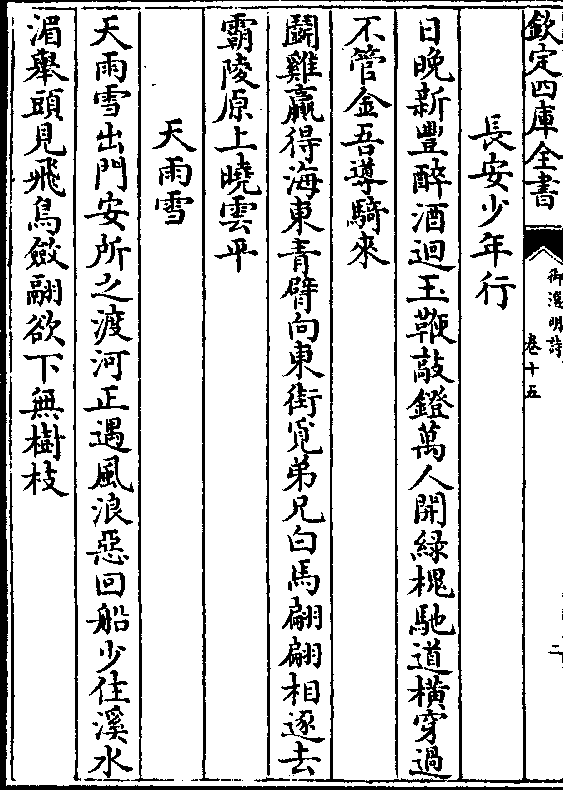 欽定四庫全書
御選明詩
卷十五
二
長安少年行
日晚新豐醉酒迴玉鞭敲鐙萬人開綠槐馳道橫穿過
不管金吾導騎來
鬬雞贏得海東青臂向東街覓弟兄白馬翩翩相逐去
霸陵原上曉雲平
天雨雪
天雨雪出門安所之渡河正遇風浪惡回船少住溪水
湄舉頭見飛鳥斂翮欲下無樹枝